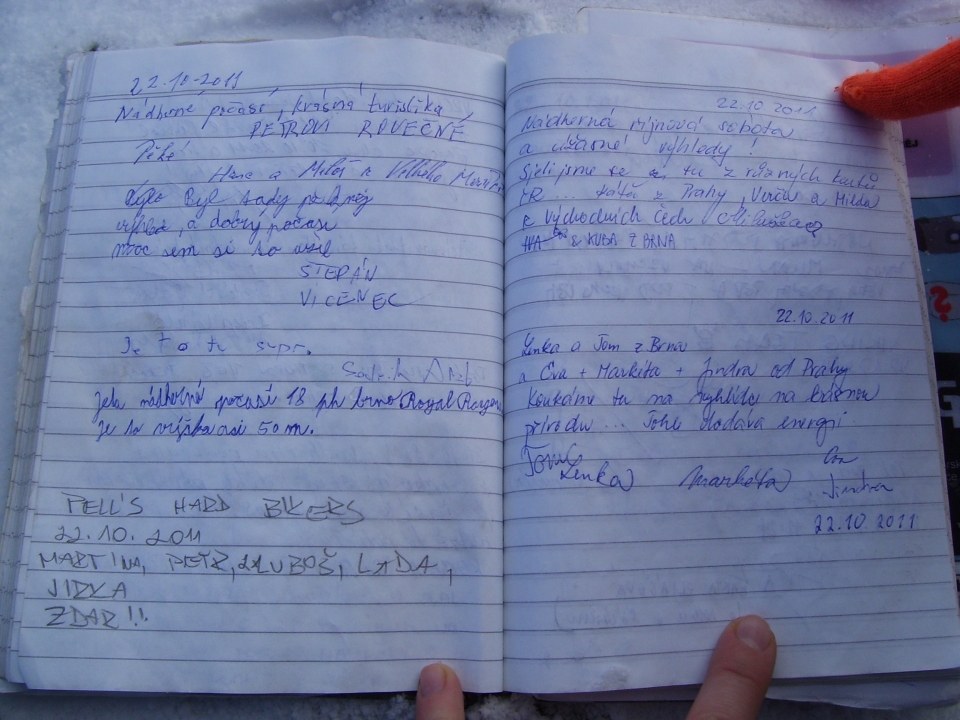 22.10.2011
Nádherné počasí, krásná turistika
PETROVI ROVEČNÉ
Pěké
Hana a Miloš z Velkého
Bylo Byl tady
výhled, a dobrý počasí
moc sem si to užil
ŠTĚPÁN
VICENEC
Je to tu supr.
Jela nádherné počasí 18 ph brno Royal Rangers
je to výška asi 50 m.
PELL'S HARD BIKERS
22.10.2011
MARTINA, PETR, LUBOŠ, LÁĎA,
JIRKA
ZDAR!!
22.10.2011
Nádherná říjnová sobota
a úžasné výhledy!
Sjeli jsme se tu z různých koutů
ČR ... z Prahy, a Milda
z východních Čech
& KUBA Z BRNA
22.10.2011
Lenka a Tom z Brna
a Eva + Markéta + Jindra od Prahy
Koukáme tu na vyhlídce na krásnou
přírodu ... Tohle dodává energii
Tom
Lenka
Markéta
Eva
Jindra
22.10 2011